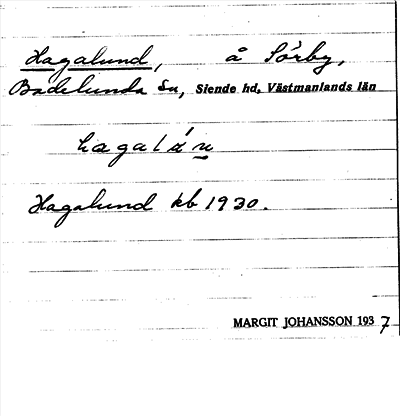 Hagalund, å Sörby,
Badelunda Sn, Siende hd, Västmanlands län
Hagalund kb 1930.
MARGIT JOHANSSON 1937